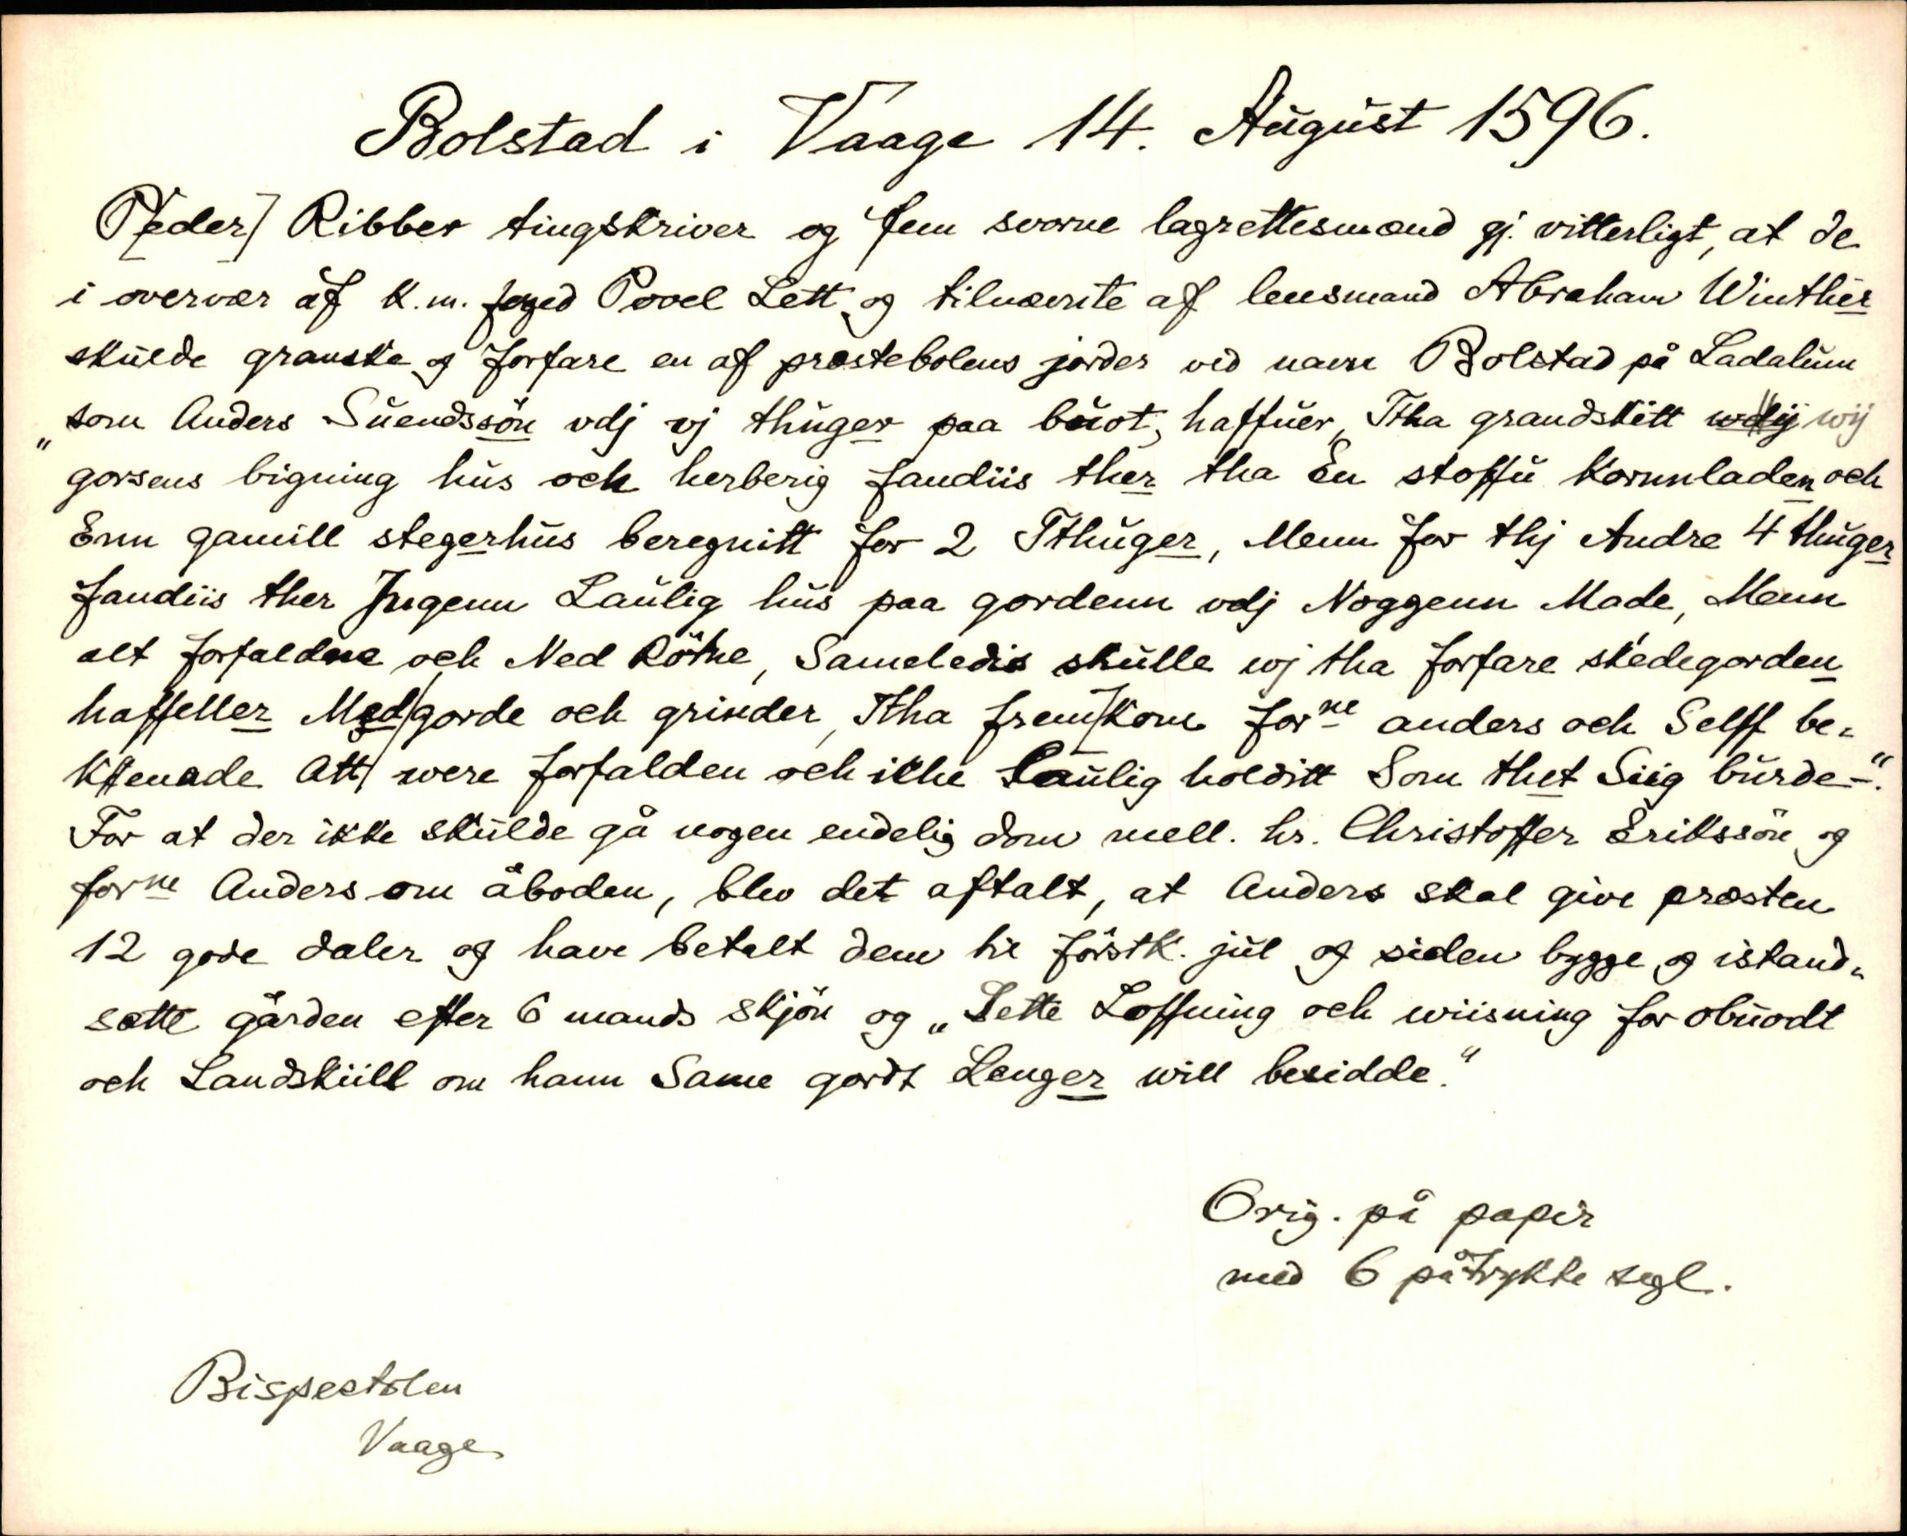 Bolstad i Vaage 14. August 1596.
P[eder] Ribber tingskriver og fem svorne lagrettesmænd gj. vitterligt, at de
i overvær af K. m. foged Povel Lett og tilnævnte af lensmand Abraham Winther
skulde granske og forfare en af præstebolens jorder ved navn Bolstad på Ladalum
som Anders Suendssön vdj vj thuger paa buot, haffuer, Ttha grandskitt wij
"gorsens bigning hus och herberig fandiis ther tha En stoffu Kornnladen och
Enn gamill stegerhus beregnitt for 2 Tthuger, Menn for thj Andre 4 thuger
fandiis ther Jngenn Laulig hus paa gordenn vdj Noggenn Made, Menn
alt forfaldne och Ned Röthe, Sameledis skulle wj tha forfare skedegorden
haffeller Medgorde och grinder, Ttha frem Kom forne anders och Selff be-
Kenade Att were forfalden och ikke Laulig holditt Som thet Siig burde-".
For at der ikke skulde gå nogen endelig dom mell. hr. Christoffer Erikssön og
forne Anders om åboden, blev det aftalt, at Anders skal give præsten
12 gode daler og have betalt dem til förstk. jul og siden bygge og istand-
sætte gården efter 6 mands skjön og „Sette Loffning och wiisning for obuodt
och Landskiill om hann Same gordt Lenger will besidde."
Orig. på papir
med 6 påtrykte segl.
Bispestolen
Vaage